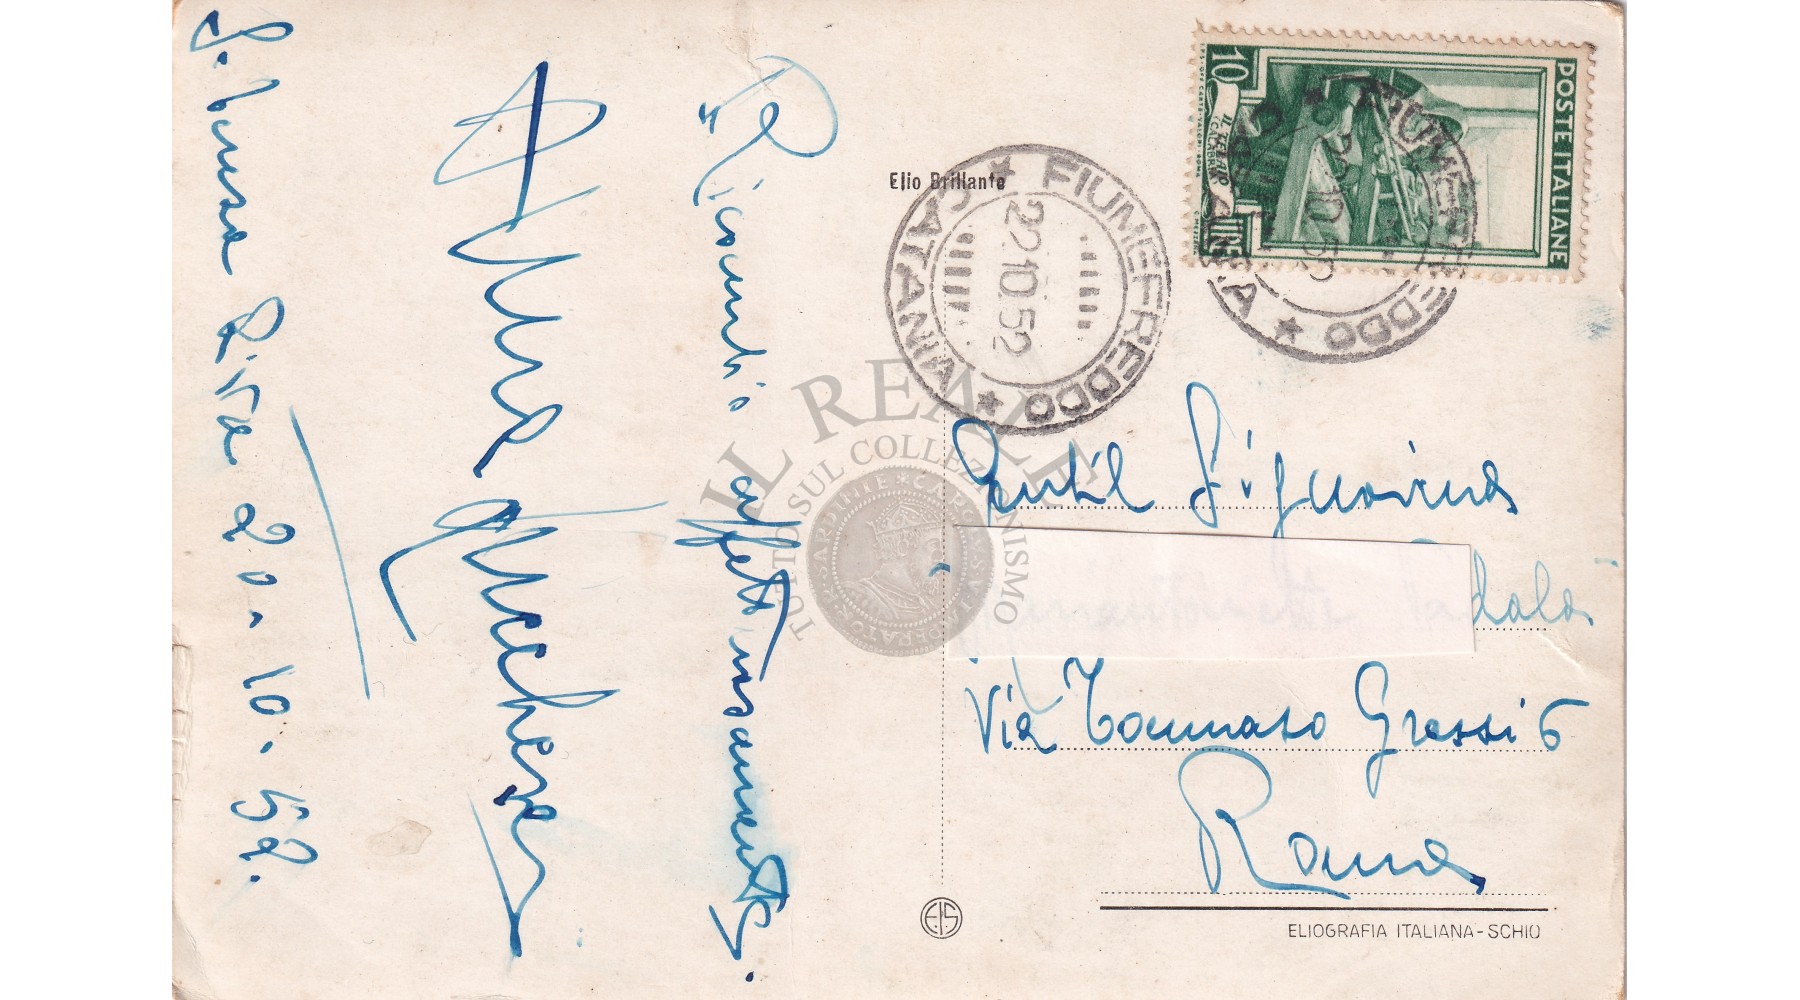 Ricambio affettuosamente.
20.10.52.
Elio Brillante
FIUMEFREDDO
* CATANIA *
22.10.52
FIUMEFREDDO
* CATANIA *
22.10.52
POSTE ITALIANE
10
LIRE
IL TELAIO
(CALABRIA)
Gentil Signorina
Via Tommaso Grossi 6
Roma
EIS
ELIOGRAFIA ITALIANA-SCHIO
IL REALE
TUTTO SUL COLLEZIONISMO